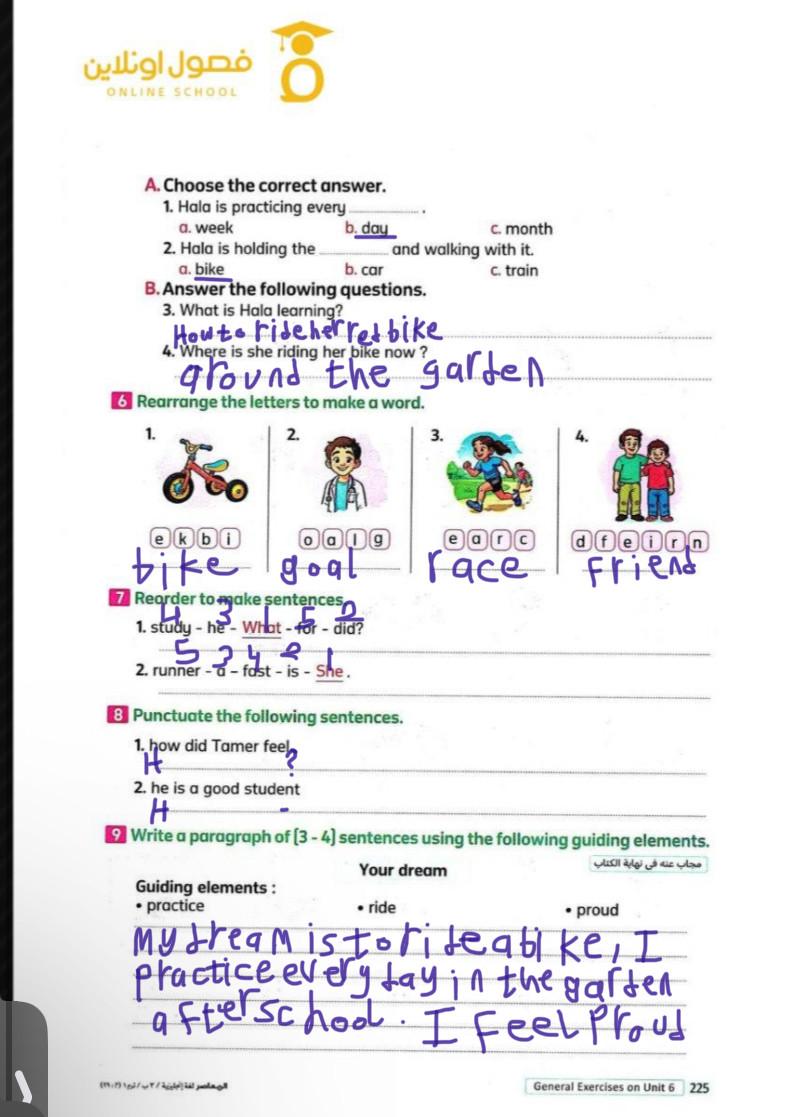 فصول اونلاين
ONLINE SCHOOL
A. Choose the correct answer.
1. Hala is practicing every .
a. week b. day c. month
2. Hala is holding the and walking with it.
a. bike b. car c. train
B. Answer the following questions.
3. What is Hala learning?
How to ride her red bike
4. Where is she riding her bike now ?
around the garden
6 Rearrange the letters to make a word.
1. 2. 3. 4.
e k b i o a l g e a r c d f e i r n
bike goal race friend
7 Reorder to make sentences.
4 3 1 5 2
1. study - he - What - for - did?
5 3 4 2 1
2. runner - a - fast - is - She .
8 Punctuate the following sentences.
1. how did Tamer feel
H ?
2. he is a good student
H .
9 Write a paragraph of (3 - 4) sentences using the following guiding elements.
مجاب عنه في نهاية الكتاب
Your dream
Guiding elements :
• practice • ride • proud
My dream is to ride a bike, I
practice every day in the garden
after school. I feel proud
General Exercises on Unit 6 225